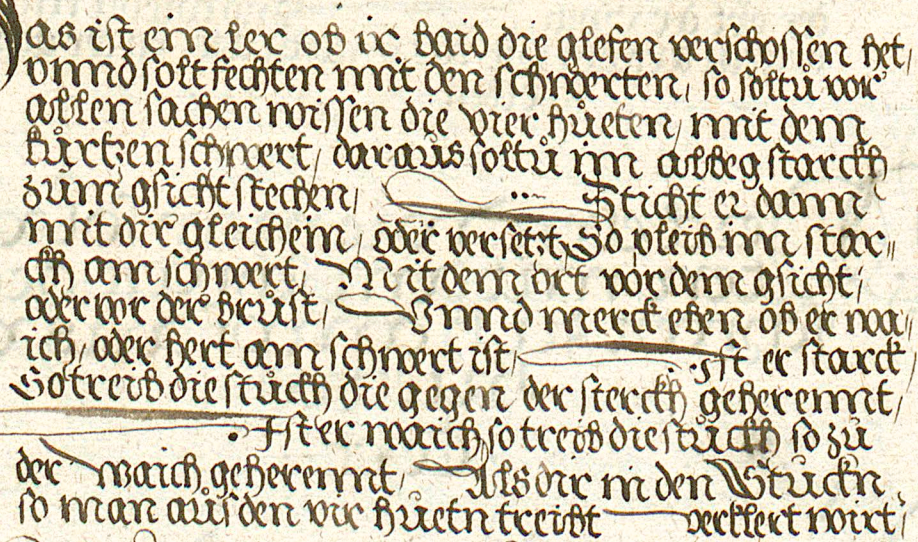 Das ist ein ler ob ir baid die glefen verschossen het,
vnnd solt fechten mit den schwerten, so soltu vor
allen sachen wissen die vier hůeten, mit dem
kůrtzen schwert, daraůs soltů im albeg starckh
zům gsicht stechen, Sticht er dann
mit dir gleichein, oder versetzt, So pleib im star-
ckh am schwert, Mit dem ort vor dem gsicht,
oder vor der brůst, Vnnd merck eben ob er wa-
ich, oder hert am schwert ist, Ist er starck,
So treib die stůckh die gegen der sterckh geherennt,
Ist er waich, so treib die stůckh so zů
der waich geherennt, Als dir in den Stuckn,
so man aůs den vir hůetn treibt verklert wirt,